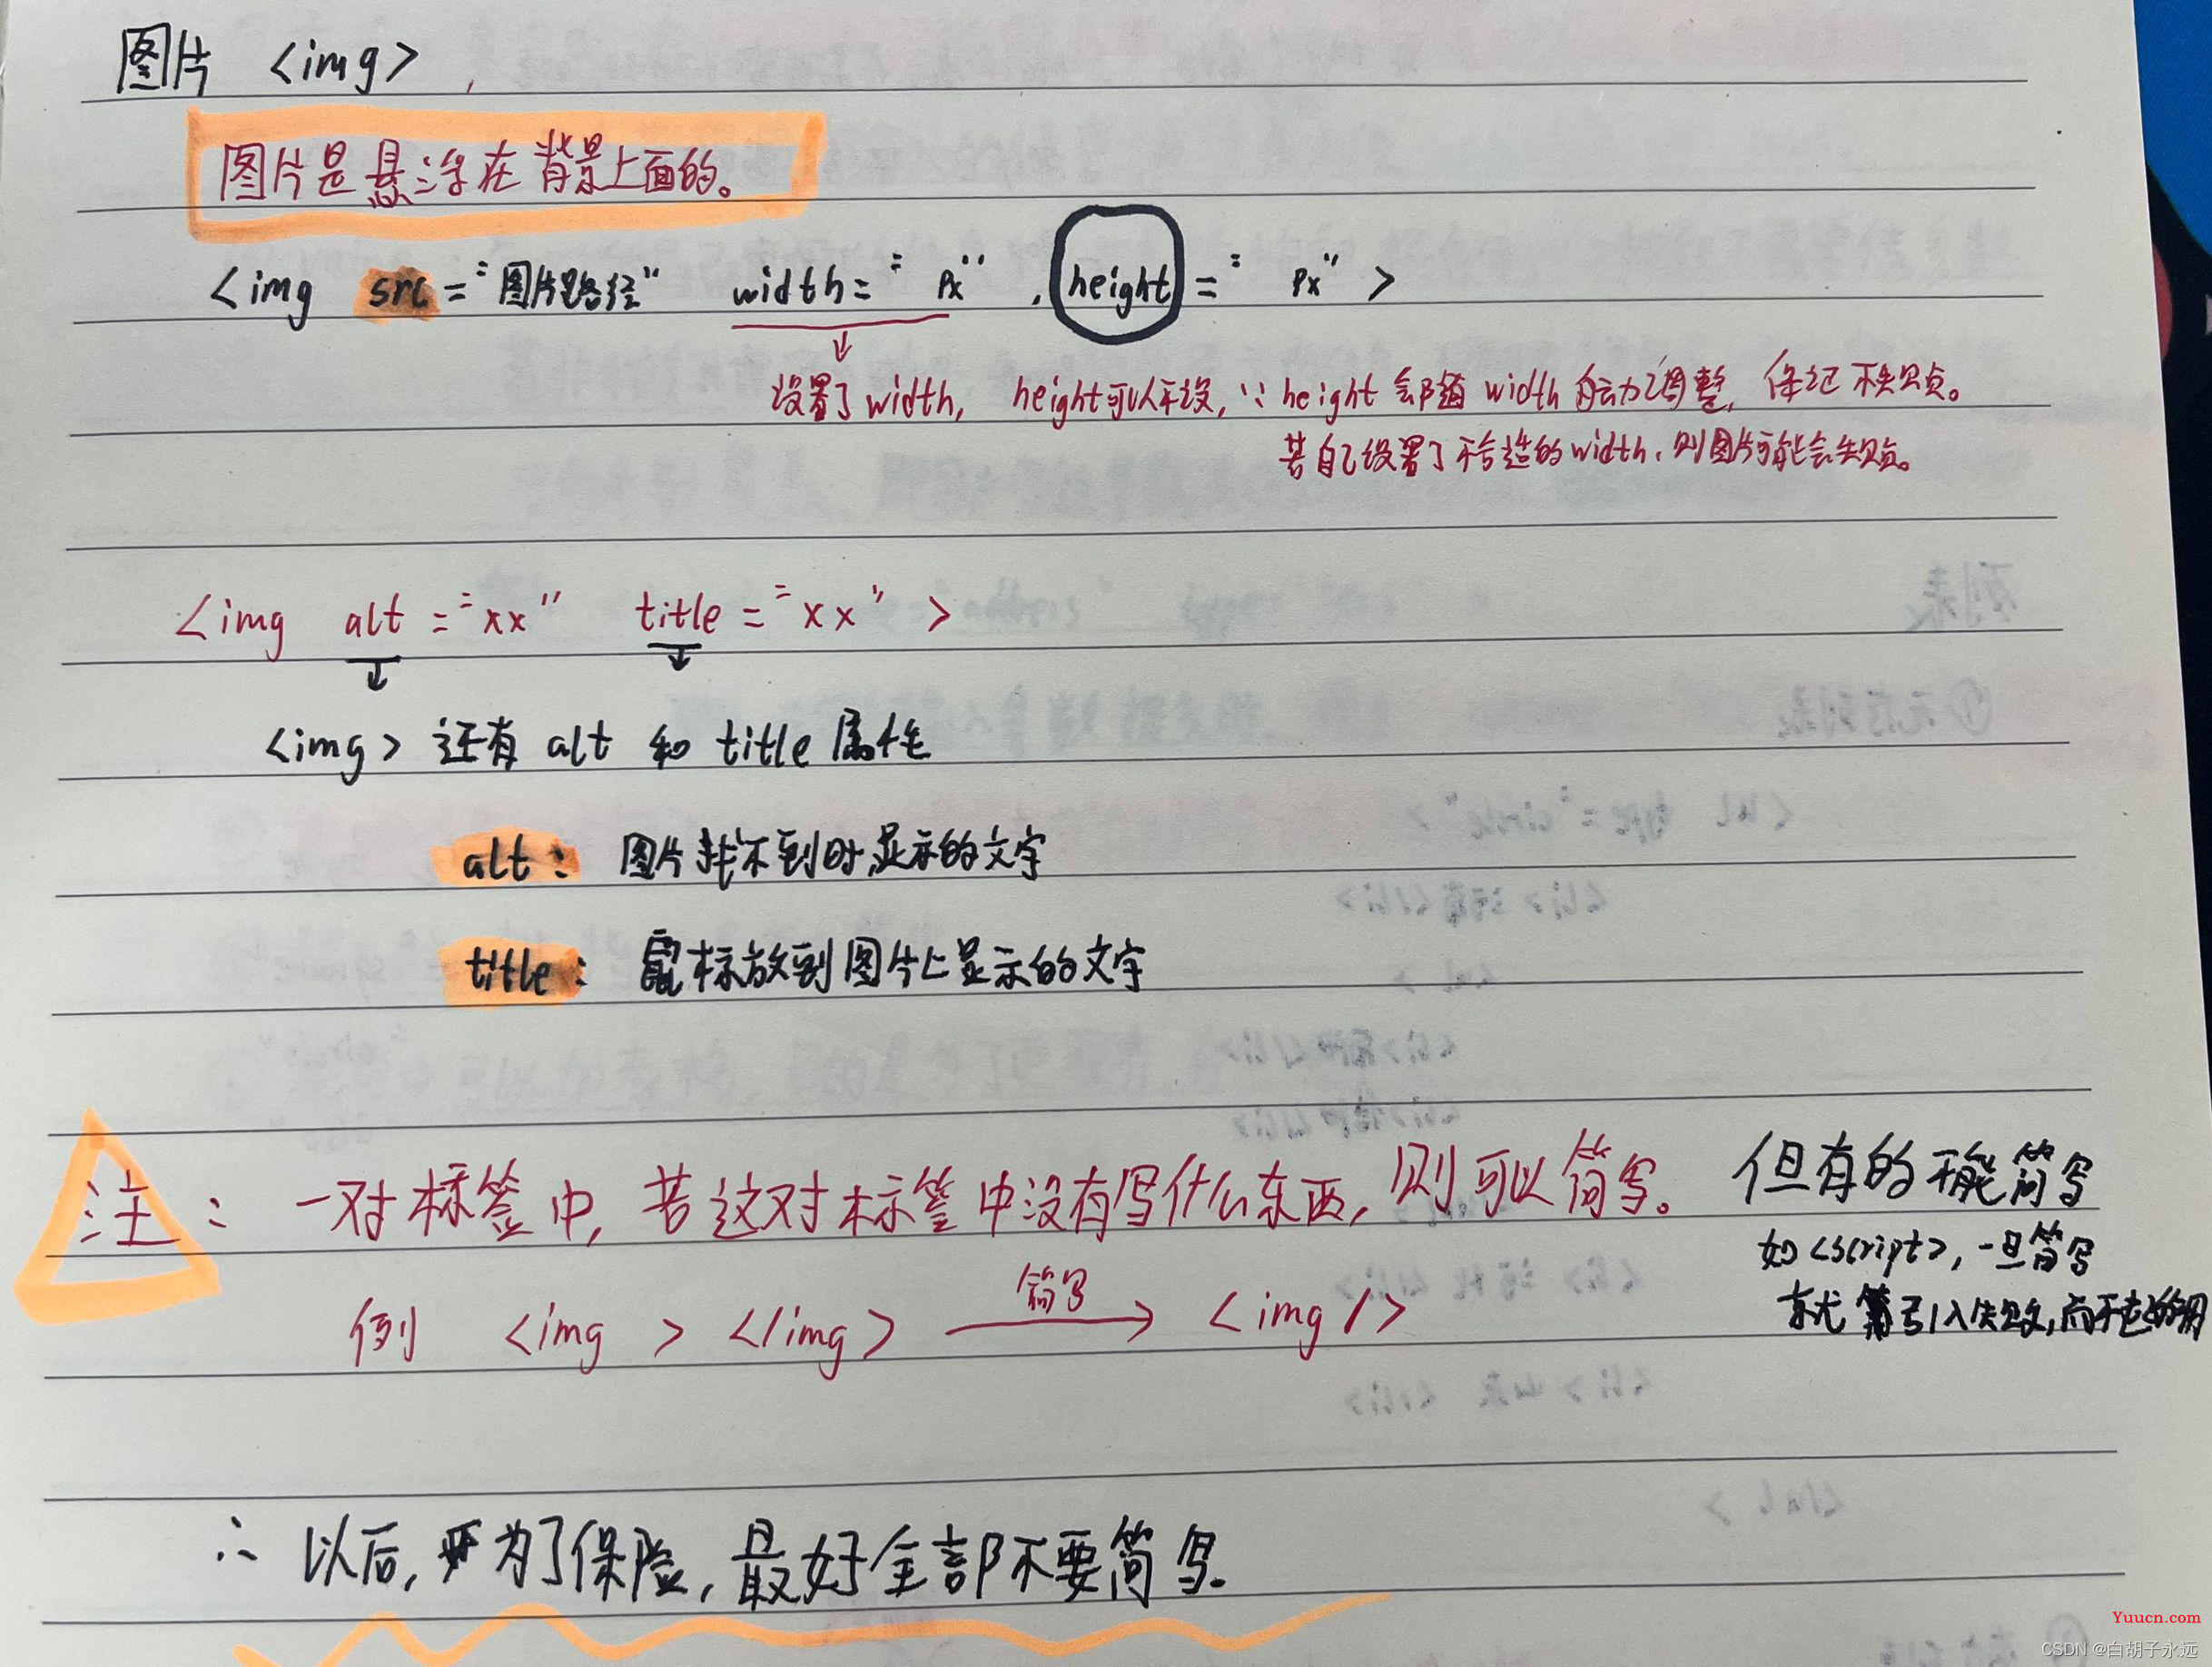 图片 <img>
图片是悬浮在背景上面的。
<img src="图片路径" width=" px", height=" px">
设置了width, height可以不设, ∵ height会随width自动调整, 保证不失真。
若自己设置了不合适的width, 则图片可能会失真。
<img alt="xx" title="xx">
<img> 还有 alt 和 title 属性
alt: 图片找不到时,显示的文字
title: 鼠标放到图片上显示的文字
注: 一对标签中, 若这对标签中没有写什么东西, 则可以简写。 但有的不能简写
如<script>, 一旦简写
就 算引入失败, 而不起作用
例 <img > </img> 简写 → <img />
∴ 以后, 为了保险, 最好全部不要简写.
Yuucn.com
CSDN @白胡子永远